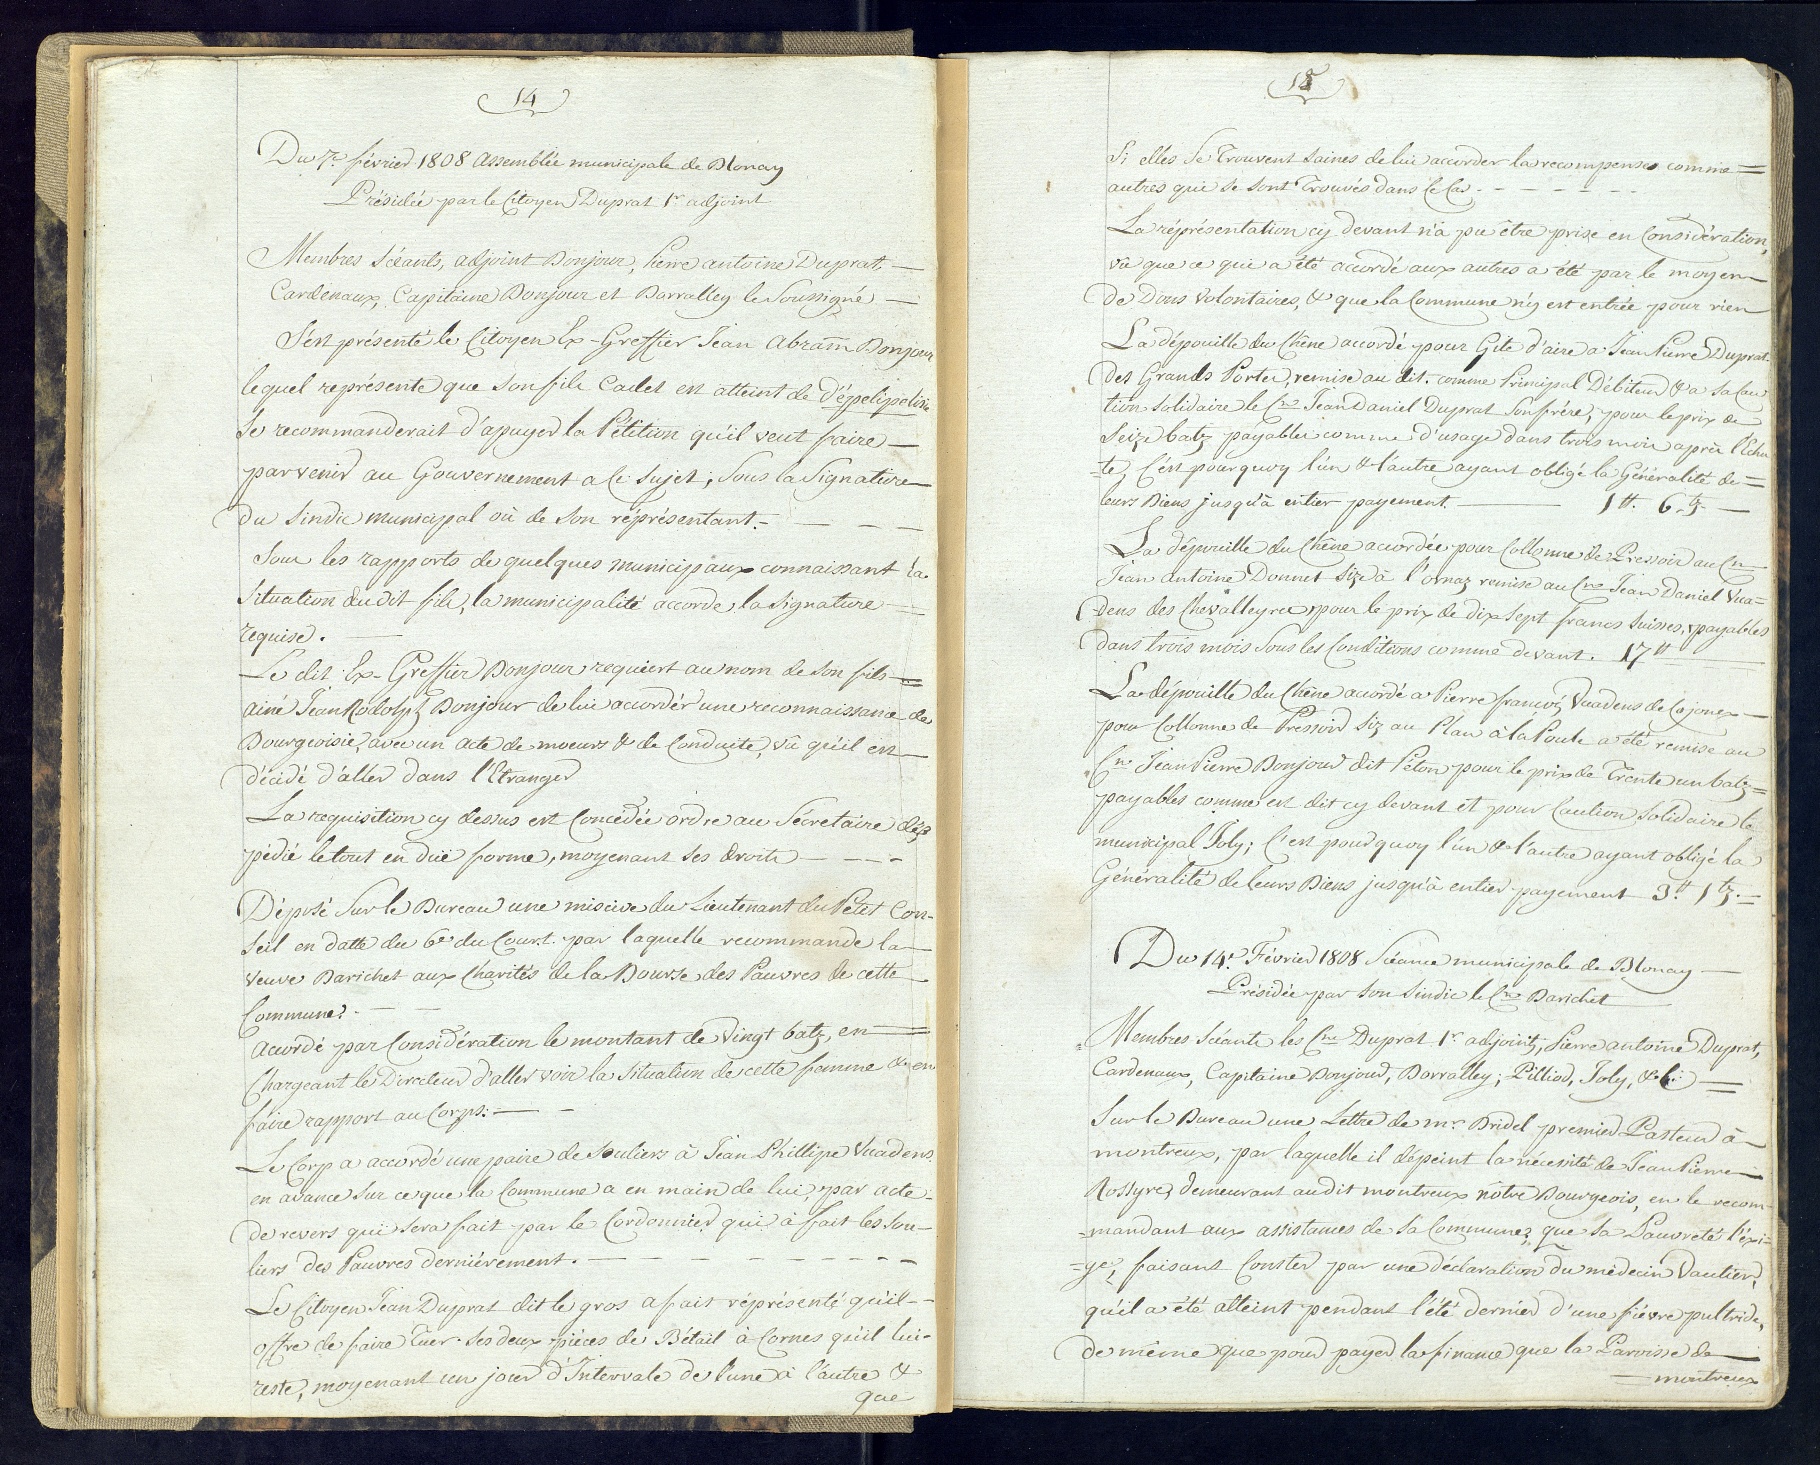 14
Du 7e. février 1808 Assemblée municipale de Blonay
Présidée par le Citoyen Duprat 1r adjoint
Membres Séants, adjoint Bonjour, Pierre antoine Duprat,
Cardenaux, Capitaine Bonjour et Borralley le Soussigné
S'est présenté le Citoyen Ex-Greffier Jean Abram Bonjour
lequel représente que son fils Cadet est atteint de d'épelipelsie
Se recommanderait d'apuyer la Pétition qu'il veut faire
parvenir au Gouvernement a Ce Sujet; Sous la Signature
du Sindic municipal où de Son réprésentant.
Sous les rapports de quelques municipaux connaissant la
Situation du dit fils, la municipalité accorde la Signature
requise.
Le dit Ex-Greffier Bonjour requiert au nom de Son fils
ainé Jean Rodolph Bonjour de lui accordér une reconnaissance de
Bourgeoisie, avec un acte de moeurs & de Conduite, vû qu'il est
décidé d'aller dans l'Etranger
La requisition cy dessus est Concedée ordre au Sécretaire d'éx
pédié le tout en duë forme, moyenant Ses droits
Déposé Sur le Bureau une miscive du Lieutenant du Petit Con-
Seil en datte du 6e du Court. par laquelle recommande la
veuve Barichet aux Charités de la Bourse des Pauvres de cette
Commune.
Accordé par Considération le montant de vingt batz, en
Chargeant le Directeur d'aller voir la Situation de cette femme & en
faire rapport au Corps.
Le Corp a accordé une paire de Souliers à Jean Phillipe Vuadens
en avance Sur ce que la Commune a en main de lui, par acte
de revers qui Sera fait par le Cordonnier qui à fait les Sou-
liers des Pauvres dernièrement.
Le Citoyen Jean Duprat dit le gros a fait réprésenté qu'il
offre de faire Tuer Ses deux pièces de Bétail à Cornes qu'il lui
reste, moyenant un jour d'Intervale de l'une à l'autre &
que
15
Si elles Se Trouvent Saines de lui accorder la recompense comme
autres qui Se Sont Trouvés dans le Cas
La réprésentation cy devant n'a pu être prise en Considération,
vû que ce qui a été accordé aux autres a été par le moyen
de Dons volontaires, & que la Commune n'y est entrée pour rien
La dépouille du Chêne accordé pour Gite d'aire a Jean Pierre Duprat
des Grands Portes, remise au dit. comme Principal Débiteur & a Sa Cau
tion Solidaire le Cn Jean Daniel Duprat Son frère, pour le prix de
Seize batz payables comme d'usage dans trois mois après l'Echu
te, C'est pourquoy l'un & l'autre ayant obligé la Généralité de
leurs Biens jusqu'à entier payement. 1 tt. 6 tz
La dépouille du Chêne accordée pour Collonne de Pressoir au Cn
Jean antoine Donnet Size à l'ornaz remise au Cn Jean Daniel Vua-
dens des Chevalleyres, pour le prix de dix Sept francs Suisses, payables
dans trois mois Sous les Conditions comme devant. 17 tt
La dépouille du Chêne accordé a Pierre françois Vuadens de Cojonex
pour Collonne de Pressoir Siz au Plan à la Poule a été remise au
Cn Jean Pierre Bonjour dit Péton pour le prix de Trente un batz
payables comme est dit cy devant et pour Caution Solidaire le
municipal Joly; C'est pourquoy l'un & l'autre ayant obligé la
Généralité de leurs Biens jusqu'à entier payement 3 tt 1 tz.
Du 14e. Février 1808 Séance municipale de Blonay
Présidée par Son Sindic le Cn Barichet
Membres Séants les Cns Duprat 1r adjoint, Pierre antoine Duprat,
Cardenaux, Capitaine Bonjour, Borralley; Pilliod, Joly, &
Sur le Bureau une Lettre de mr. Bridel premier Pasteur à
montreux, par laquelle il dépeint la nécessité de Jean Pierre
Rossyre, demeurant audit montreux nôtre Bourgeois, en le recom-
mandant aux assistances de Sa Commune, que Sa Pauvreté l'éxi-
ge, faisant Conster par une déclaration du médecin Vautier,
qu'il a été atteint pendant l'été dernier d'une fièvre pultride,
de même que pour payer la finance que la Paroisse de
montreux